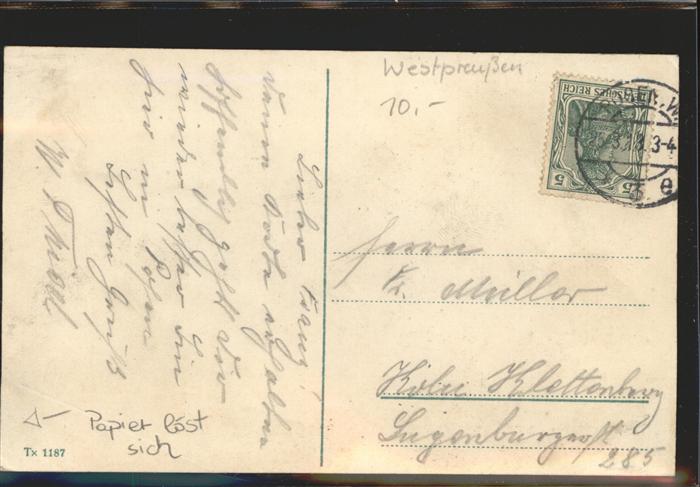 Westpreußen
10.-
DEUTSCHES REICH
5 5
3-4
Lieber Franz!
Karte erhalten
Hoffentlich geht Dir
wieder besser
in Posen
Besten Gruß
W.
Herrn
Fr. Müller
Köln Klettenberg
Luxemburgerstr
285
Papier löst
sich
Tx 1187